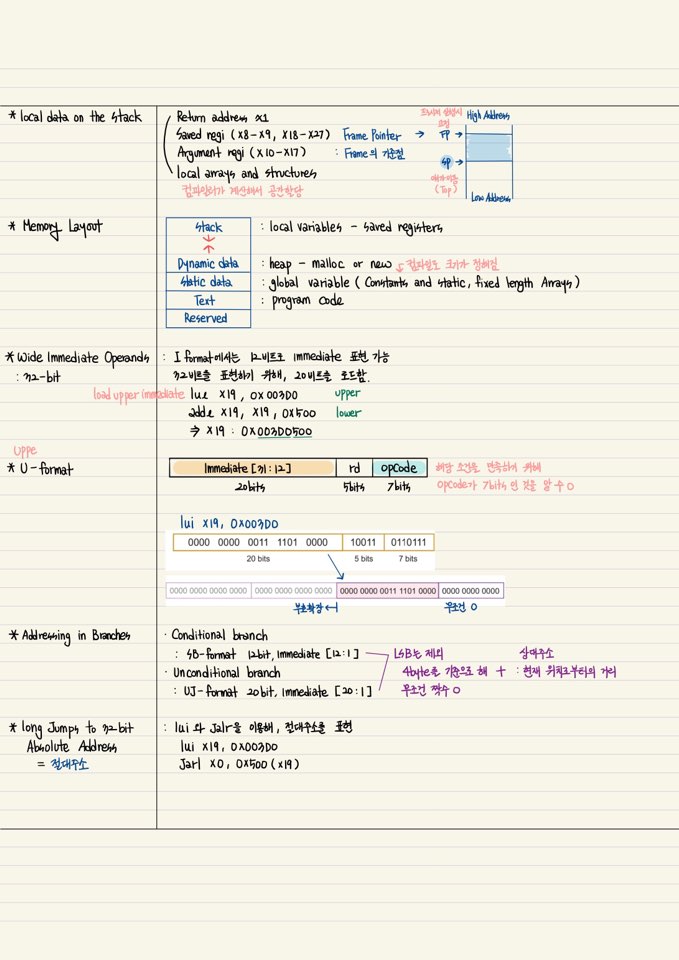 * local data on the stack
Return address x1
Saved regi (x8-x9, x18-x27)
Argument regi (x10-x17)
local arrays and structures
컴파일러가 계산해서 공간할당
Frame Pointer → FP →
: Frame의 기준점
SP →
(Top)
High Address
Low Address
* Memory Layout
stack : local variables - saved registers
Dynamic data : heap - malloc or new 컴파일로 크기가 정해짐
static data : global variable (Constants and static, fixed length Arrays)
Text : program code
Reserved
* Wide Immediate Operands
: 32-bit
: I format에서는 12비트로 immediate 표현 가능
32비트를 표현하기 위해, 20비트를 로드함.
load upper immediate lui x19, 0x003D0 upper
addi x19, x19, 0x500 lower
⇒ x19 : 0x003D0500
Uppe
* U-format
Immediate [31:12] rd opcode
20bits 5bits 7bits
해당 조건을 만족하기 위해
opcode가 7bits 인 것을 알 수 O
lui x19, 0x003D0
0000 0000 0011 1101 0000 10011 0110111
20 bits 5 bits 7 bits
0000 0000 0000 0000 0000 0000 0000 0000 0000 0000 0011 1101 0000 0000 0000 0000
부호확장 무조건 0
* Addressing in Branches
· Conditional branch
: SB-format 12bit, immediate [12:1]
· Unconditional branch
: UJ-format 20bit, immediate [20:1]
LSB는 제외
4byte를 기준으로 해 +
무조건 짝수 O
상대주소
: 현재 위치로부터의 거리
* long Jumps to 32bit
Absolute Address
= 절대주소
: lui 와 Jalr을 이용해, 절대주소를 표현
lui x19, 0x003D0
Jarl x0, 0x500 (x19)